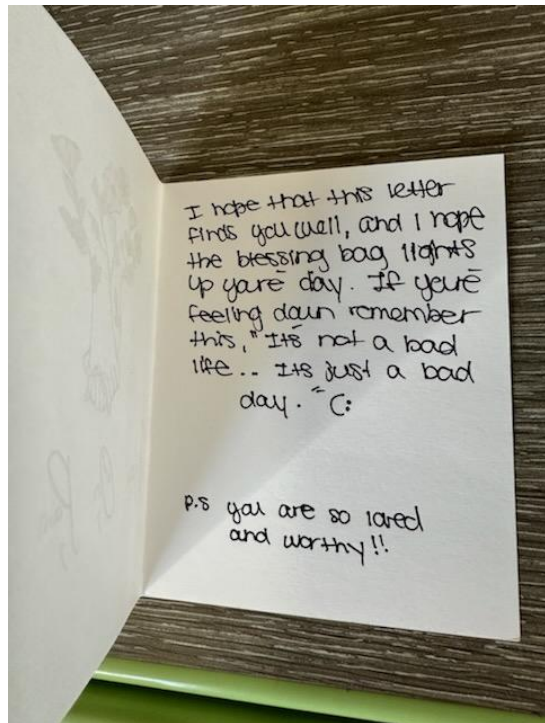 I hope that this letter
finds you well, and I hope
the blessing bag lights
up youre day. If youre
feeling down remember
this, "Its not a bad
life.. Its just a bad
day." C:
p.s you are so loved
and worthy!!